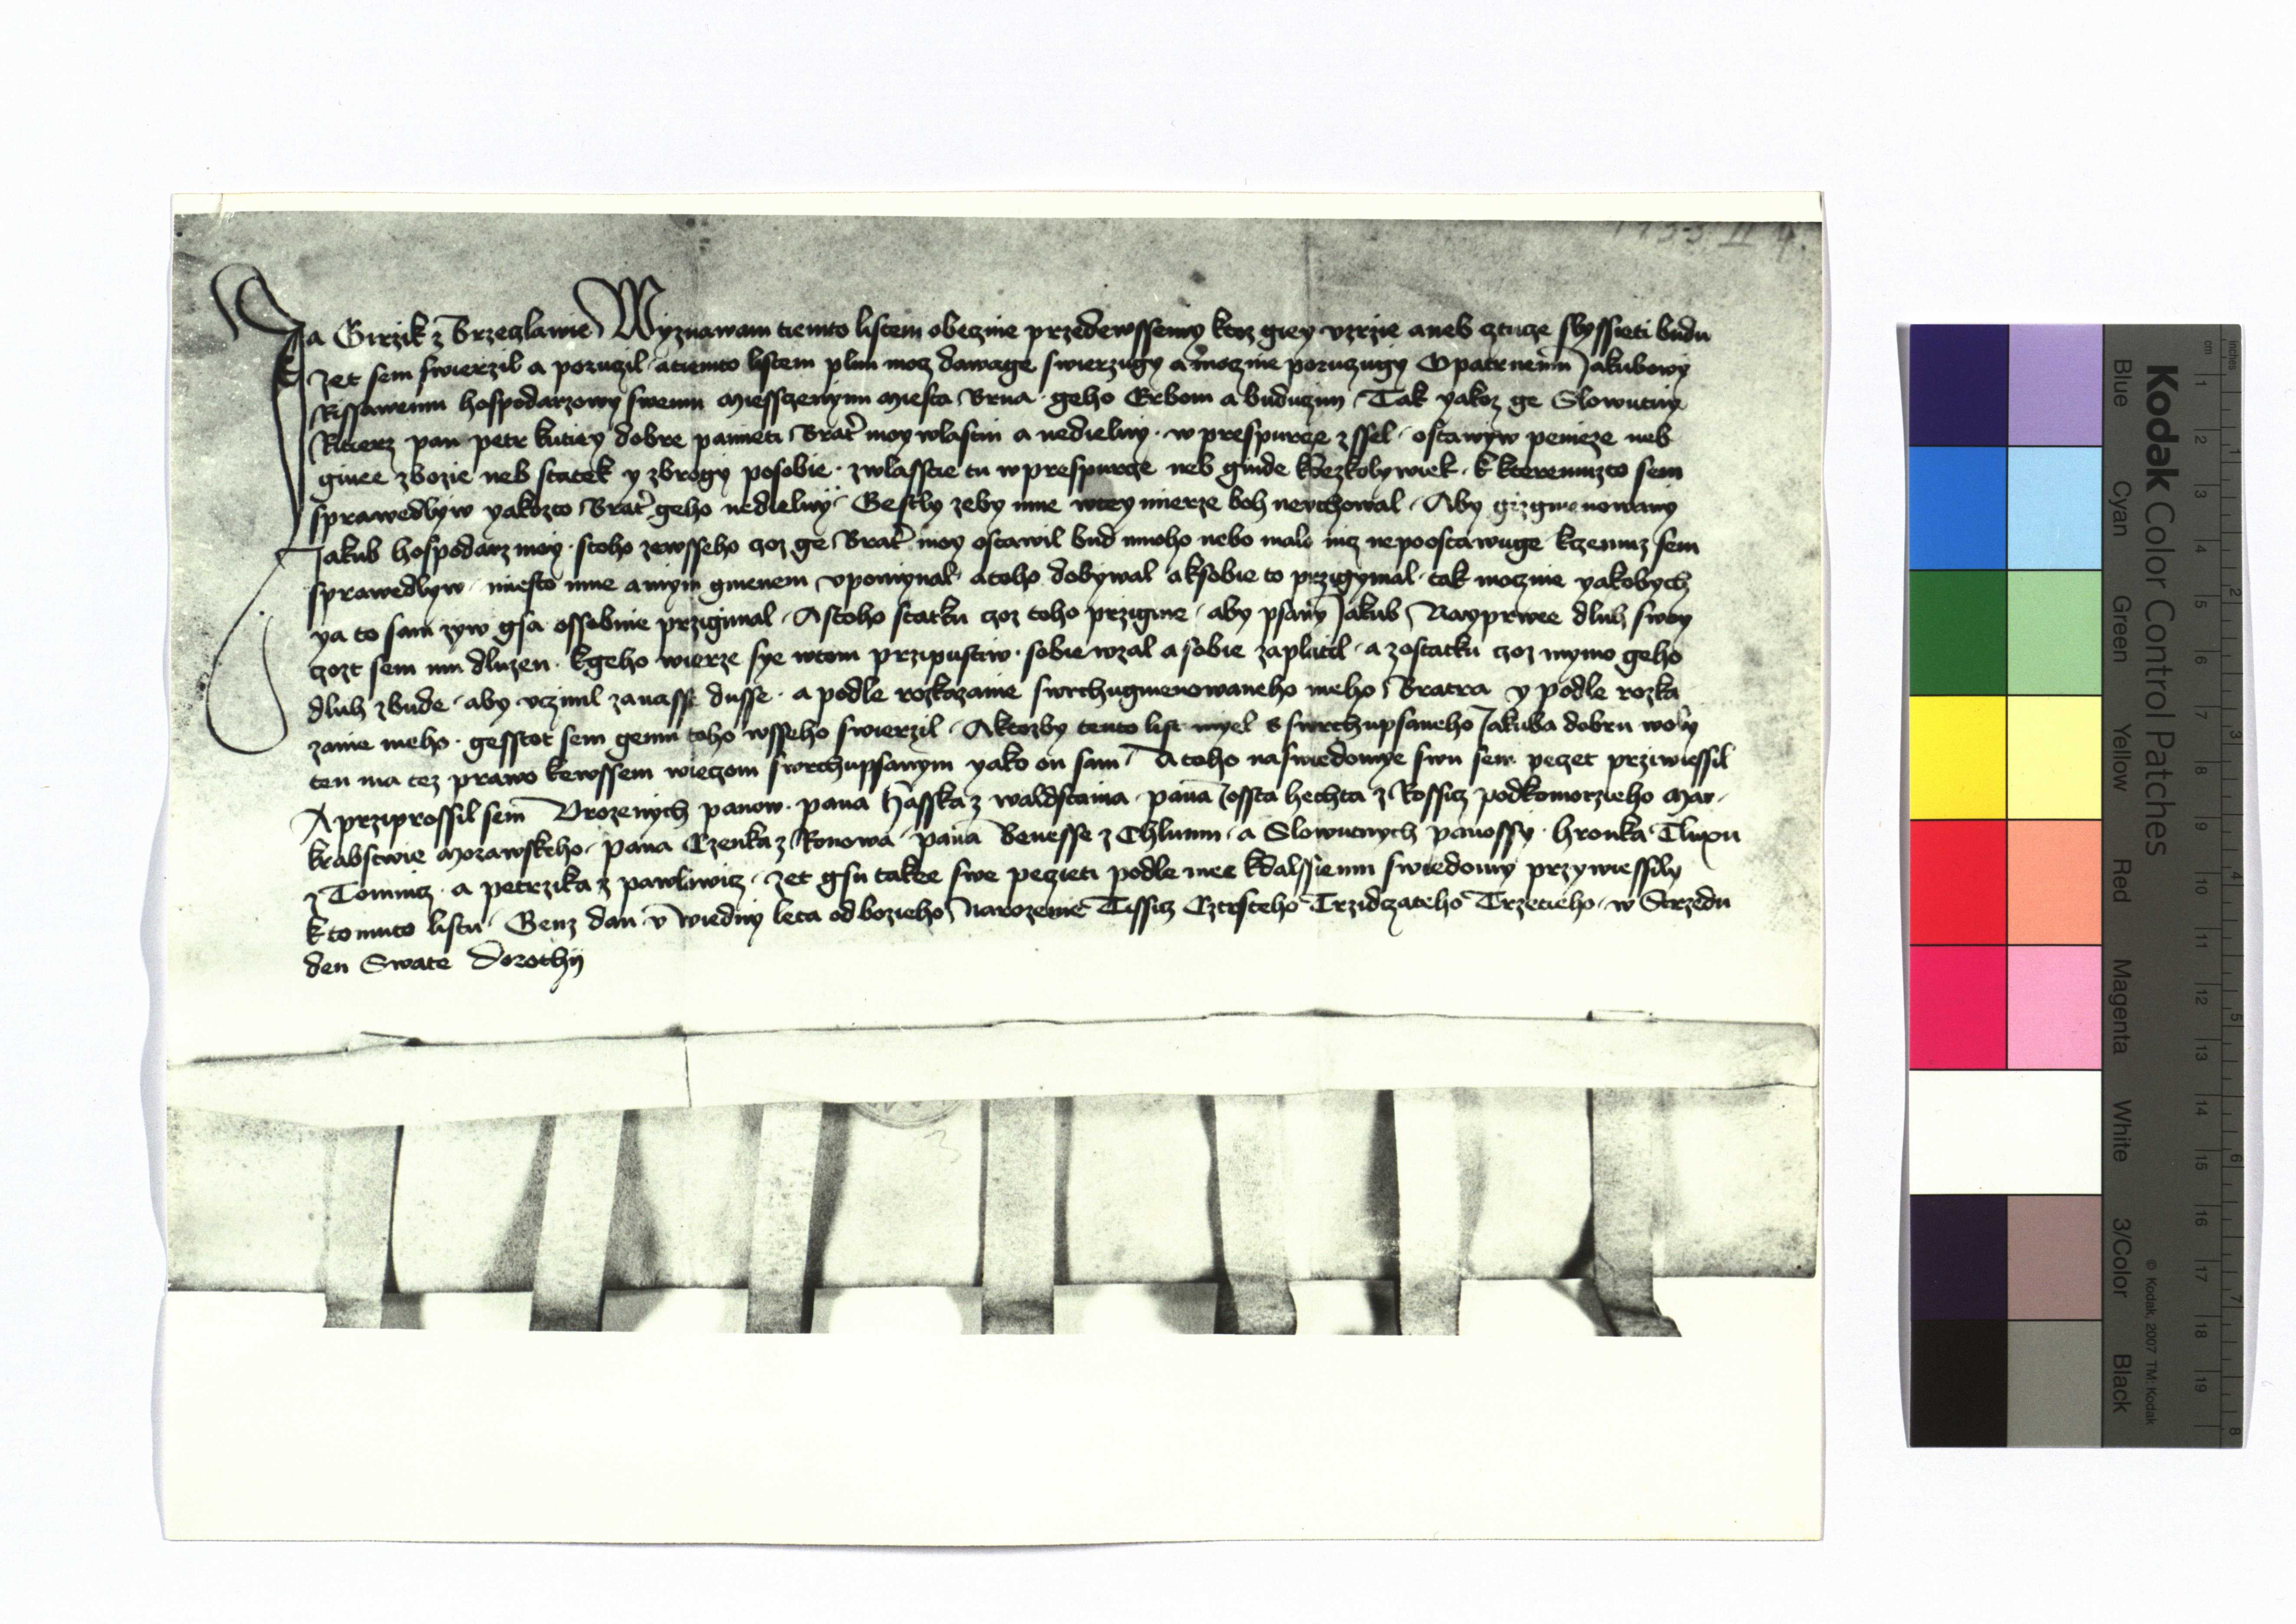 1433 II 4.
Ja Girzik z Brzeczlawie Wyznawam tiemto listem obecznie przedewssemy ktoz giey vzrzie aneb cztucze slyssieti budu
zet sem swierzil a poruczil atiemto listem plnu mocz dawage swierzugy a mocznie poruczugy Opatrnemu Jakubowy
Rissawemu hospodarzowy swemu Miessczenynu Miesta Brna geho Erbom a buduczim Tak yakoz ge Slowutny
Ritierz pan petr kutiey dobre pamieti Bratr moy wlastni a nedielny w prespurcze zssel ostawyw penieze neb
ginee zbozie neb statek y zbrogy posobie zwlasstie tu w prespurcze neb ginde kdezkolywiek k kteremuzto sem
sprawedlyw yakozto Bratr geho nedielny Gestly zeby mne wtey mierze boh neuchowal Aby gizgmenowany
Jakub hospodarz moy stoho zewsseho czoz ge Bratr moy ostawil bud mnoho nebo malo nicz nepoostawuge kczemuz sem
sprawedlyw miesto mne amym gmenem vpomynal atoho dobywal aksobie to przigymal tak mocznie yakobych
ya to sam zyw gsa ossobnie przigimal Astoho statku czoz toho przigme aby psany Jakub Nayprwee dluh swoy
czozt sem mu dluzen kgeho wierze sye wtom przipustiw sobie wzal a sobie zaplatil a zostatku czoz mymo geho
dluh zbude aby vczinil zanasse dusse a podle rozkazanie swrchugmenowaneho meho Bratra y podle rozka
zanie meho gesstot sem gemu toho wsseho swierzil Aktozby tento list myel s swrchupsaneho Jakuba dobru woly
ten ma tez prawo kewssem wieczom swrchupsanym yako on sam Atoho naswiedomye swu sem peczet przywiessil
A przyprossil sem Vrozenych panow pana hasska z waldstaina pana Jossta hechta z Rossicz podkomorzieho Mar
krabstwie Morawskeho pana Czenka z Ronowa pana benesse z Chlumu a Slowutnych panossy hronka Tluxu
z Tomnicz a petrzika z pawlowicz zet gsu takee swe peczieti podle mee kdalssiemu swiedomy przywiessily
k tomuto listu Genz dan v wiedny leta od bozieho Narozenie Tissicz Cztrsteho Trzidczateho Trzetieho w Strzedu
den Swate Dorothy
Kodak Color Control Patches
Blue Cyan Green Yellow Red Magenta White 3/Color Black
© Kodak, 2007 TM: Kodak
cm 1 2 3 4 5 6 7 8 9 10 11 12 13 14 15 16 17 18 19
Inches 1 2 3 4 5 6 7 8